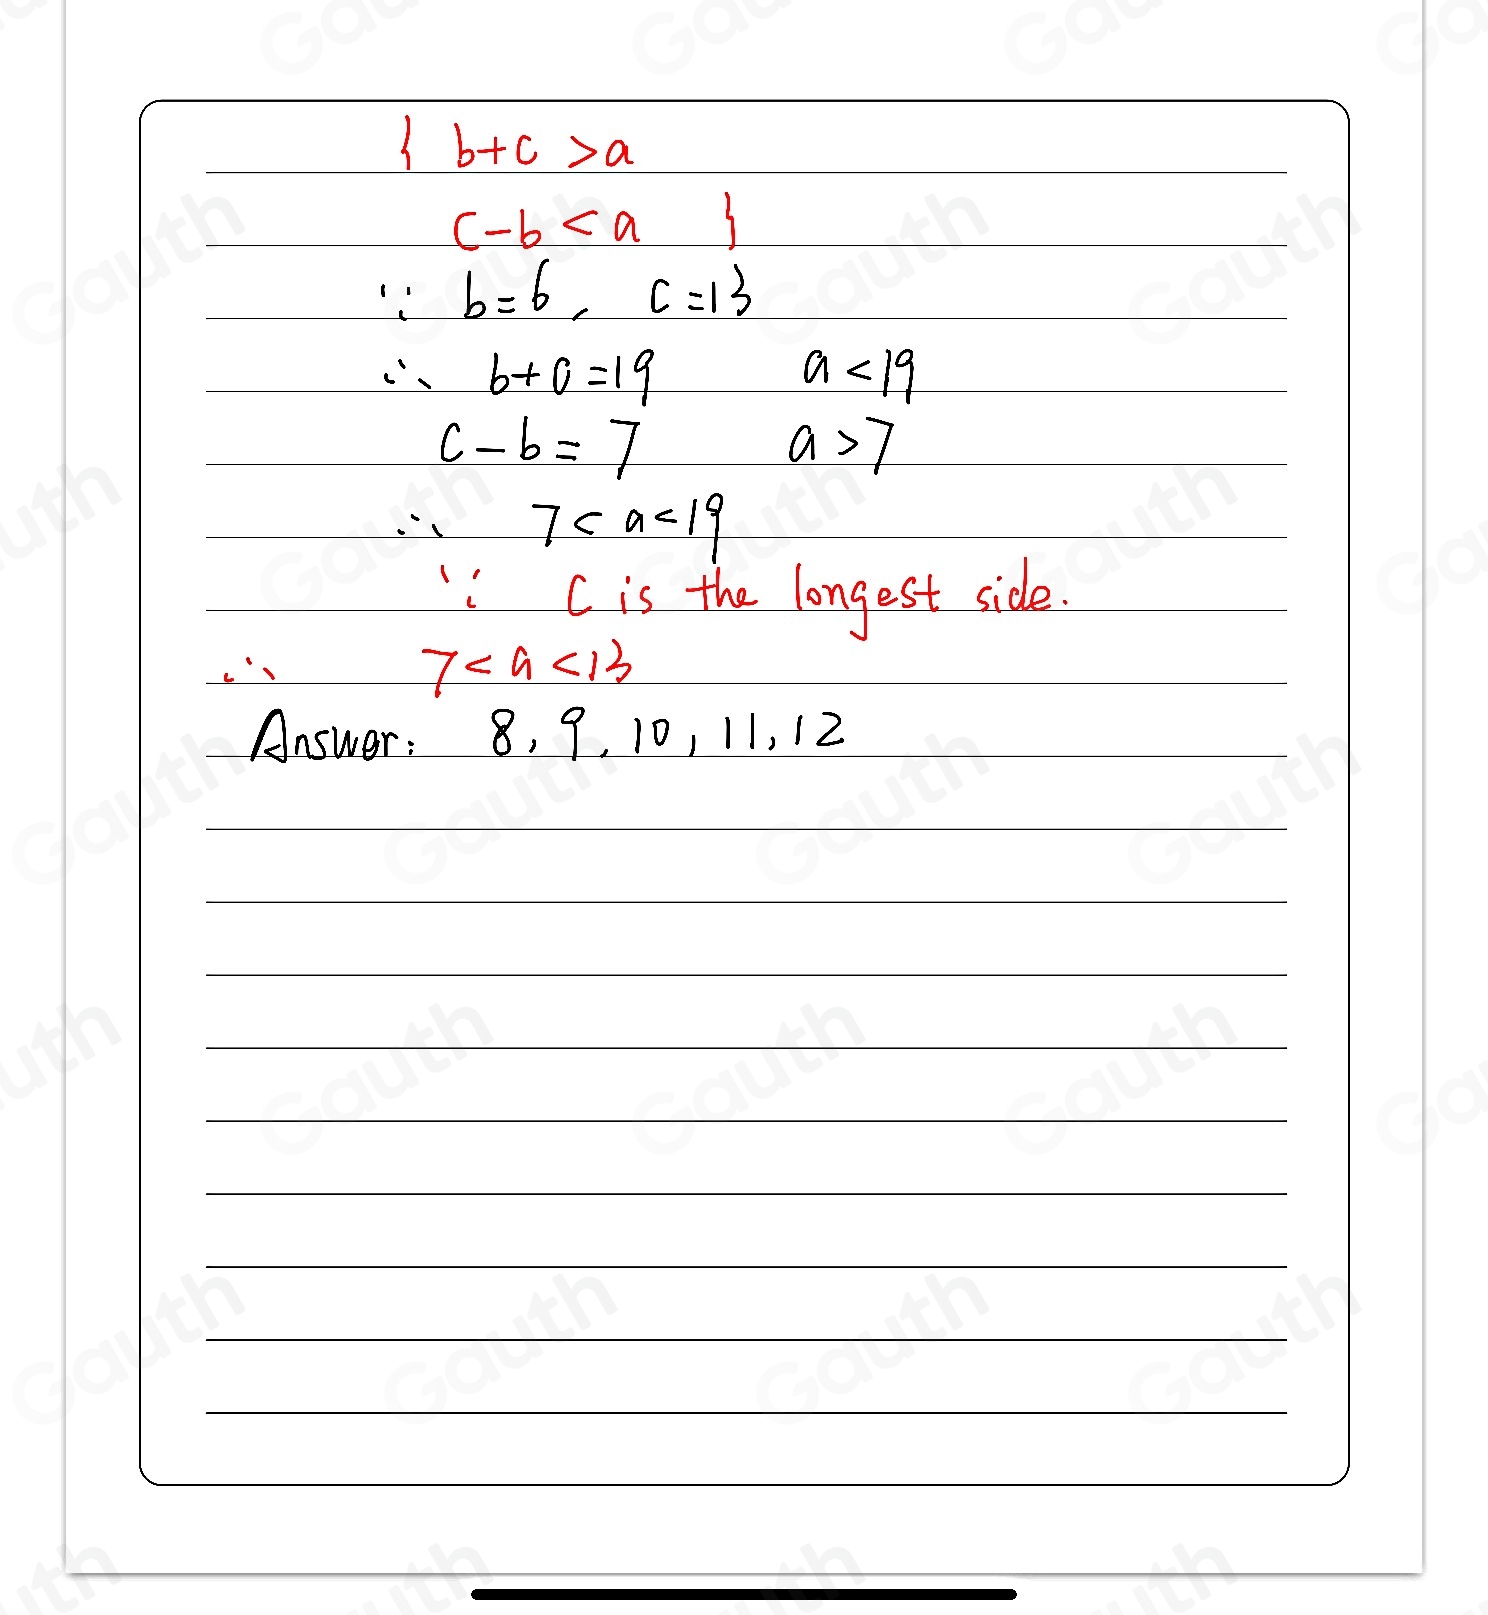 { b+c >a
c-b<a }
∵ b=6, c=13
∴ b+c=19 a<19
c-b=7 a>7
∴ 7<a<19
∵ c is the longest side.
∴ 7<a<13
Answer: 8, 9, 10, 11, 12